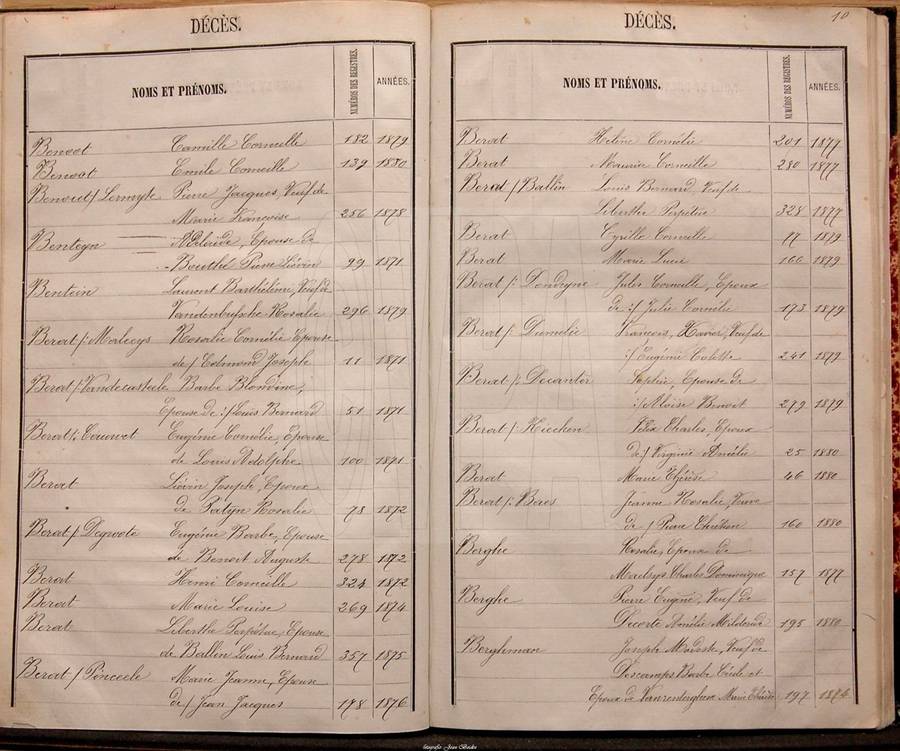 DÉCÈS.
NOMS ET PRÉNOMS. NUMÉROS DES REGISTRES. ANNÉES.
Benoot Camille Corneille 182 1879
Benoot Emile Corneille 139 1880
Benoot / Pierre Jacques, Veuf de
Marie Françoise 256 1878
Benteyn Adelaïde, Epouse de
Pierre Liévin 99 1871
Bentein Laurent Barthélemi, Veuf de
Vandenbussche Rosalie 296 1879
Berat /: Rosalie Cornélie Epouse
de / Edmond Joseph 11 1871
Berat /: Vandecasteele Barbe Blondine,
Epouse de :/ Louis Bernard 51 1871
Berat /: Eugénie Cornélie, Epouse
de Louis Adolphe 100 1871
Berat Liévin Joseph, Epoux
de Rosalie 78 1872
Berat / Degroote Eugénie Barbe, Epouse
de Benoit Auguste 278 1872
Berat Henri Corneille 324 1872
Berat Marie Louise 269 1874
Berat Liberthe Perpétue, Epouse
de Ballin Louis Bernard 357 1875
Berat / Marie Jeanne, Epouse
de / Jean Jacques 178 1876
10
DÉCÈS.
NOMS ET PRÉNOMS. NUMÉROS DES REGISTRES. ANNÉES.
Berat Hélène Cornélie 201 1877
Berat Maurice Corneille 280 1877
Berat / Ballin Louis Bernard, Veuf de
Liberthe Perpétue 328 1877
Berat Cyrille Corneille 77 1879
Berat Marie Lucie 166 1879
Berat /: Dondeyne Jules Corneille, Epoux
de :/ Julie Cornélie 173 1879
Berat / François, Xavier, Veuf de
:/ Eugénie Colette 241 1879
Berat /: Decanter Sophie, Epouse de
:/ Aloïse Benoit 279 1879
Berat / Félix Charles, Epoux
de / Virginie Amélie 25 1880
Berat Marie Thérèse 46 1880
Berat /: Jeanne Rosalie, Veuve
de / Pierre 160 1880
Berghe Rosalie, Epoux de
Maelsys Charles Dominique 157 1877
Berghe Pierre Eugène, Veuf de
Decorte Amélie Mildrède 195 1880
Berghman Joseph Modeste, Veuf de
Descamps Barbe Cécile et
Epoux de Vanrenterghem Marie Thérèse 197 1874
fotografie Jean Boeckx